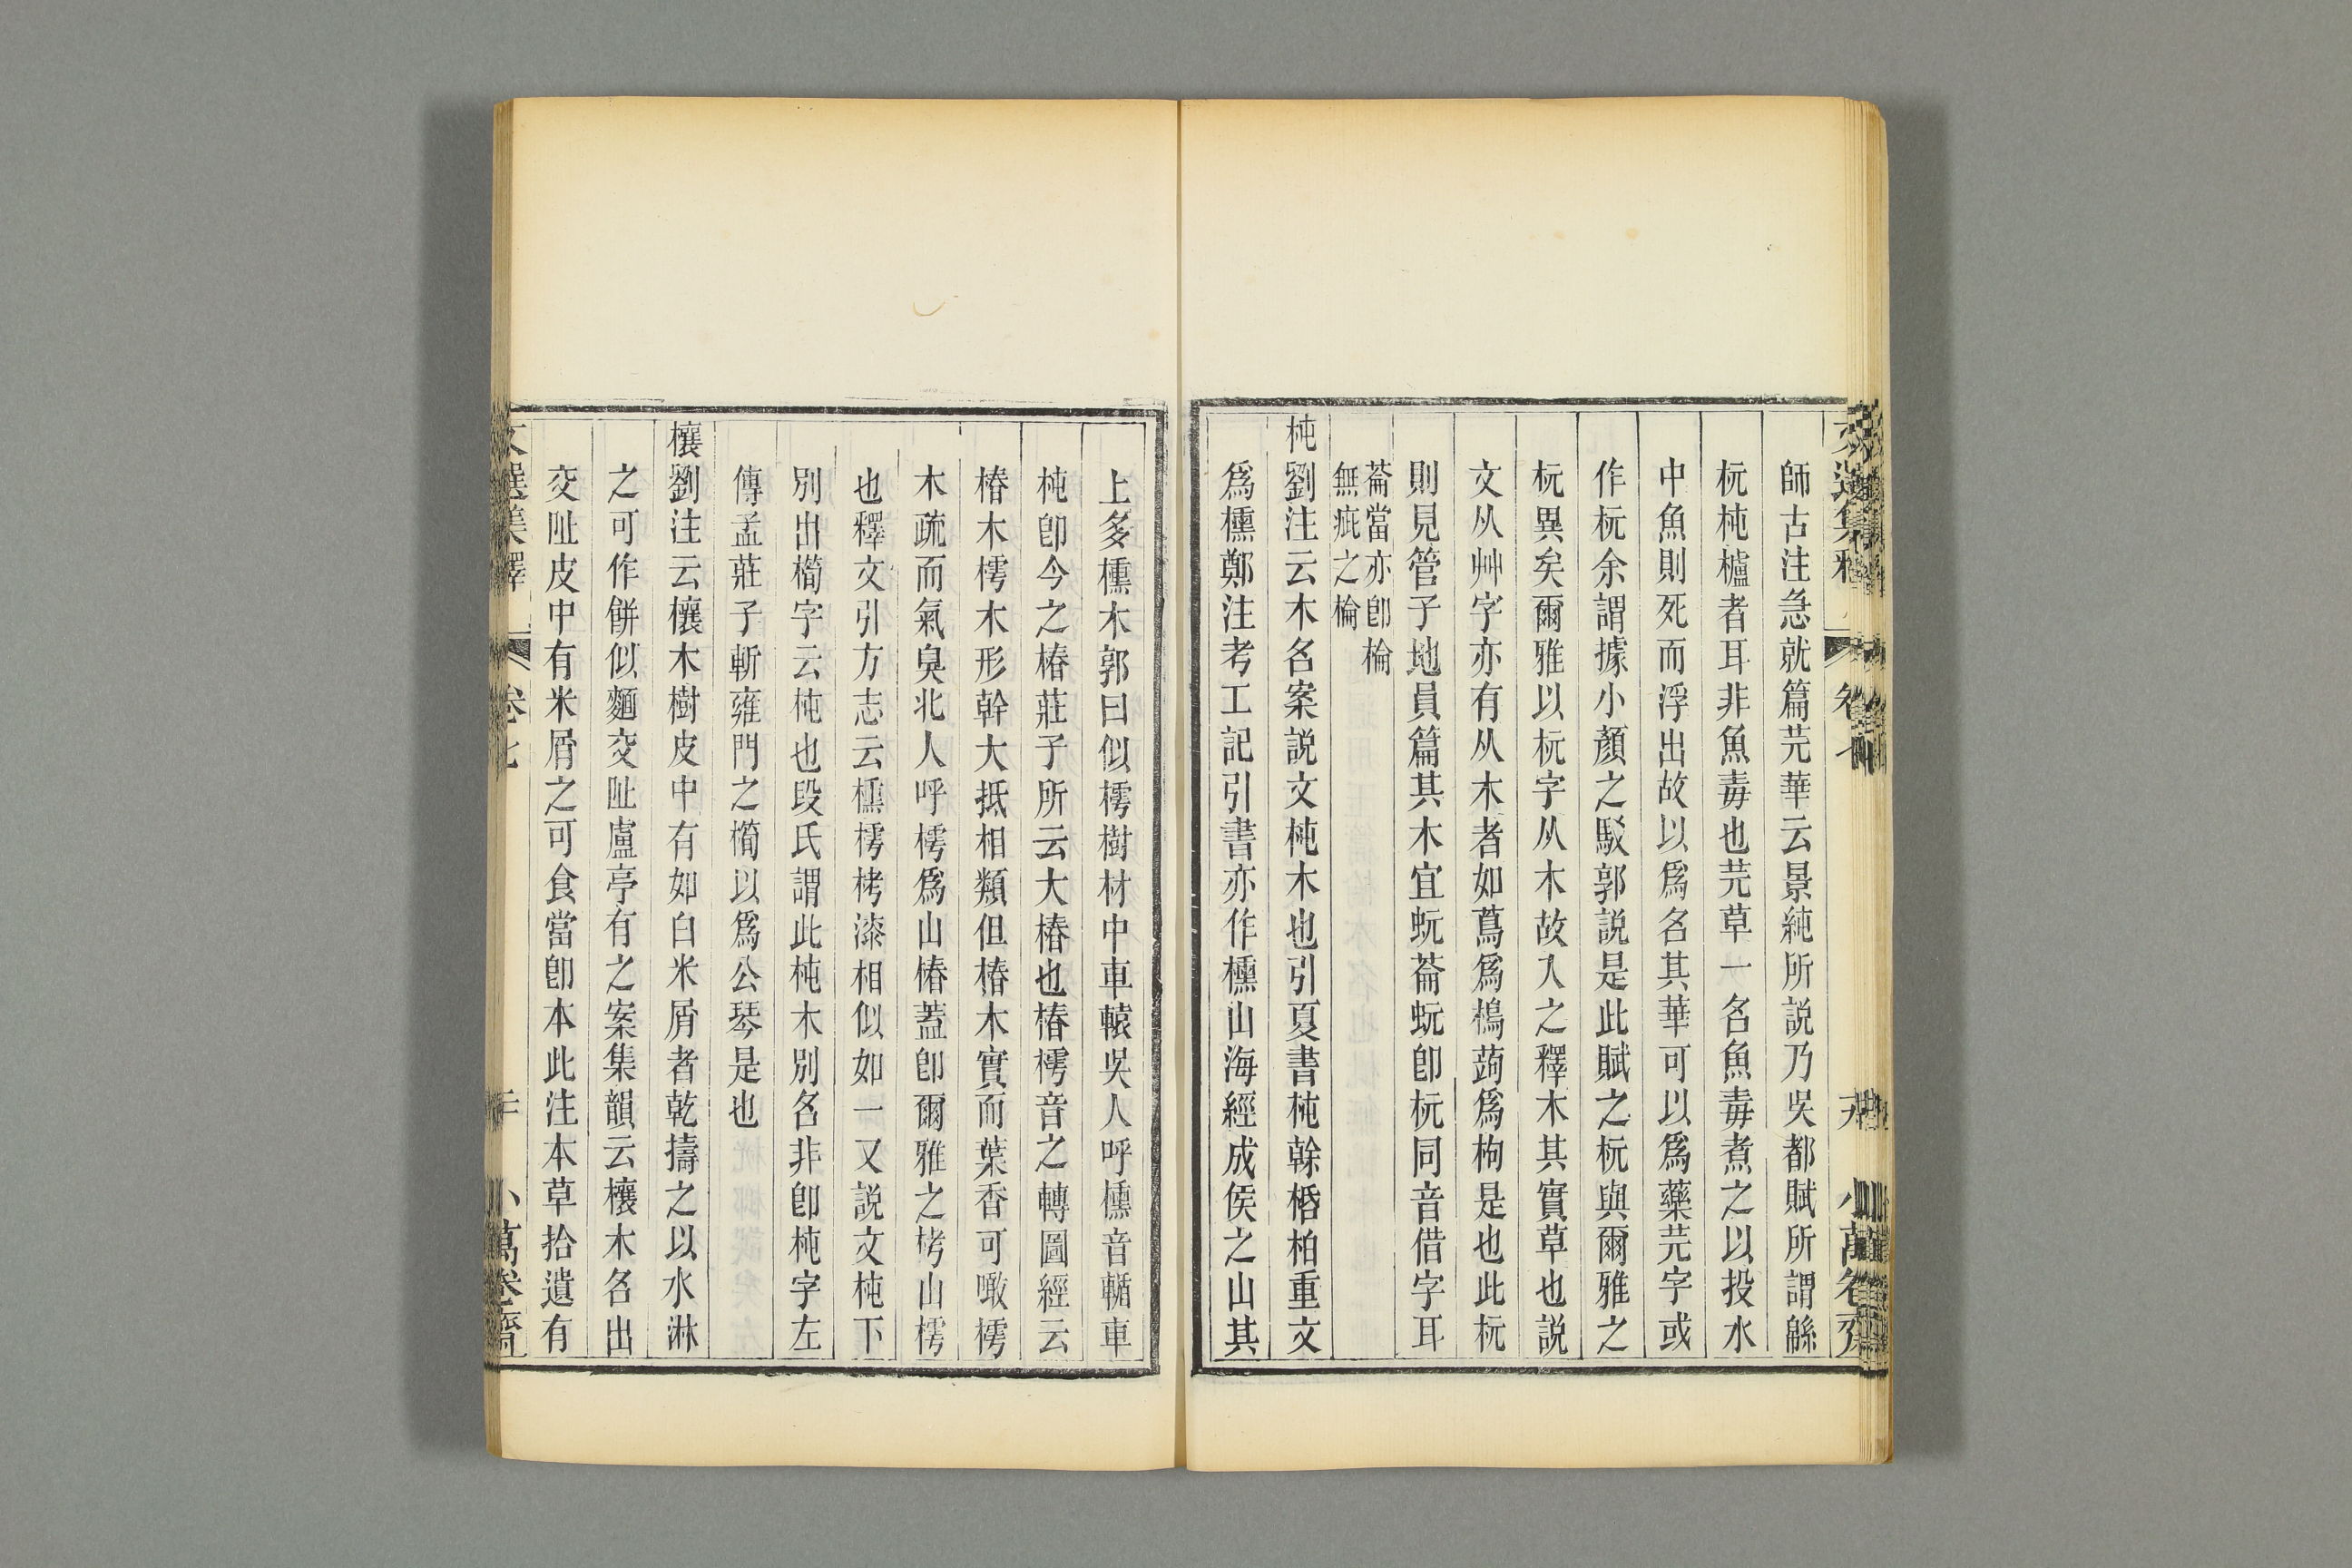 師古注急就篇芫華云景純所説乃吳都賦所謂緜
杬杶櫨者耳非魚毒也芫草一名魚毒煮之以投水
中魚則死而浮出故以爲名其華可以爲藥芫字或
作杬余謂據小顏之駁郭説是此賦之杬與爾雅之
杬異矣爾雅以杬字从木故入之釋木其實草也説
文从艸字亦有从木者如蔦爲樢蒟爲枸是也此杬
則見管子地員篇其木宜蚖菕蚖卽杬同音借字耳
菕當亦卽棆
無疵之棆
杶劉注云木名案説文杶木也引夏書杶榦栝柏重文
爲櫄鄭注考工記引書亦作櫄山海經成侯之山其
上多櫄木郭曰似樗樹材中車轅吳人呼櫄音輴車
杶卽今之椿莊子所云大椿也椿樗音之轉圖經云
椿木樗木形幹大抵相類但椿木實而葉香可噉樗
木疏而氣臭北人呼樗爲山椿蓋卽爾雅之栲山樗
也釋文引方志云櫄樗栲漆相似如一又説文杶下
別出橁字云杶也段氏謂此杶木別名非卽杶字左
傳孟莊子斬雍門之橁以爲公琴是也
欀劉注云欀木樹皮中有如白米屑者乾擣之以水淋
之可作餅似麵交趾盧亭有之案集韻云欀木名出
交趾皮中有米屑之可食當卽本此注本草拾遺有
文選集釋 卷七 二十 小萬卷齋